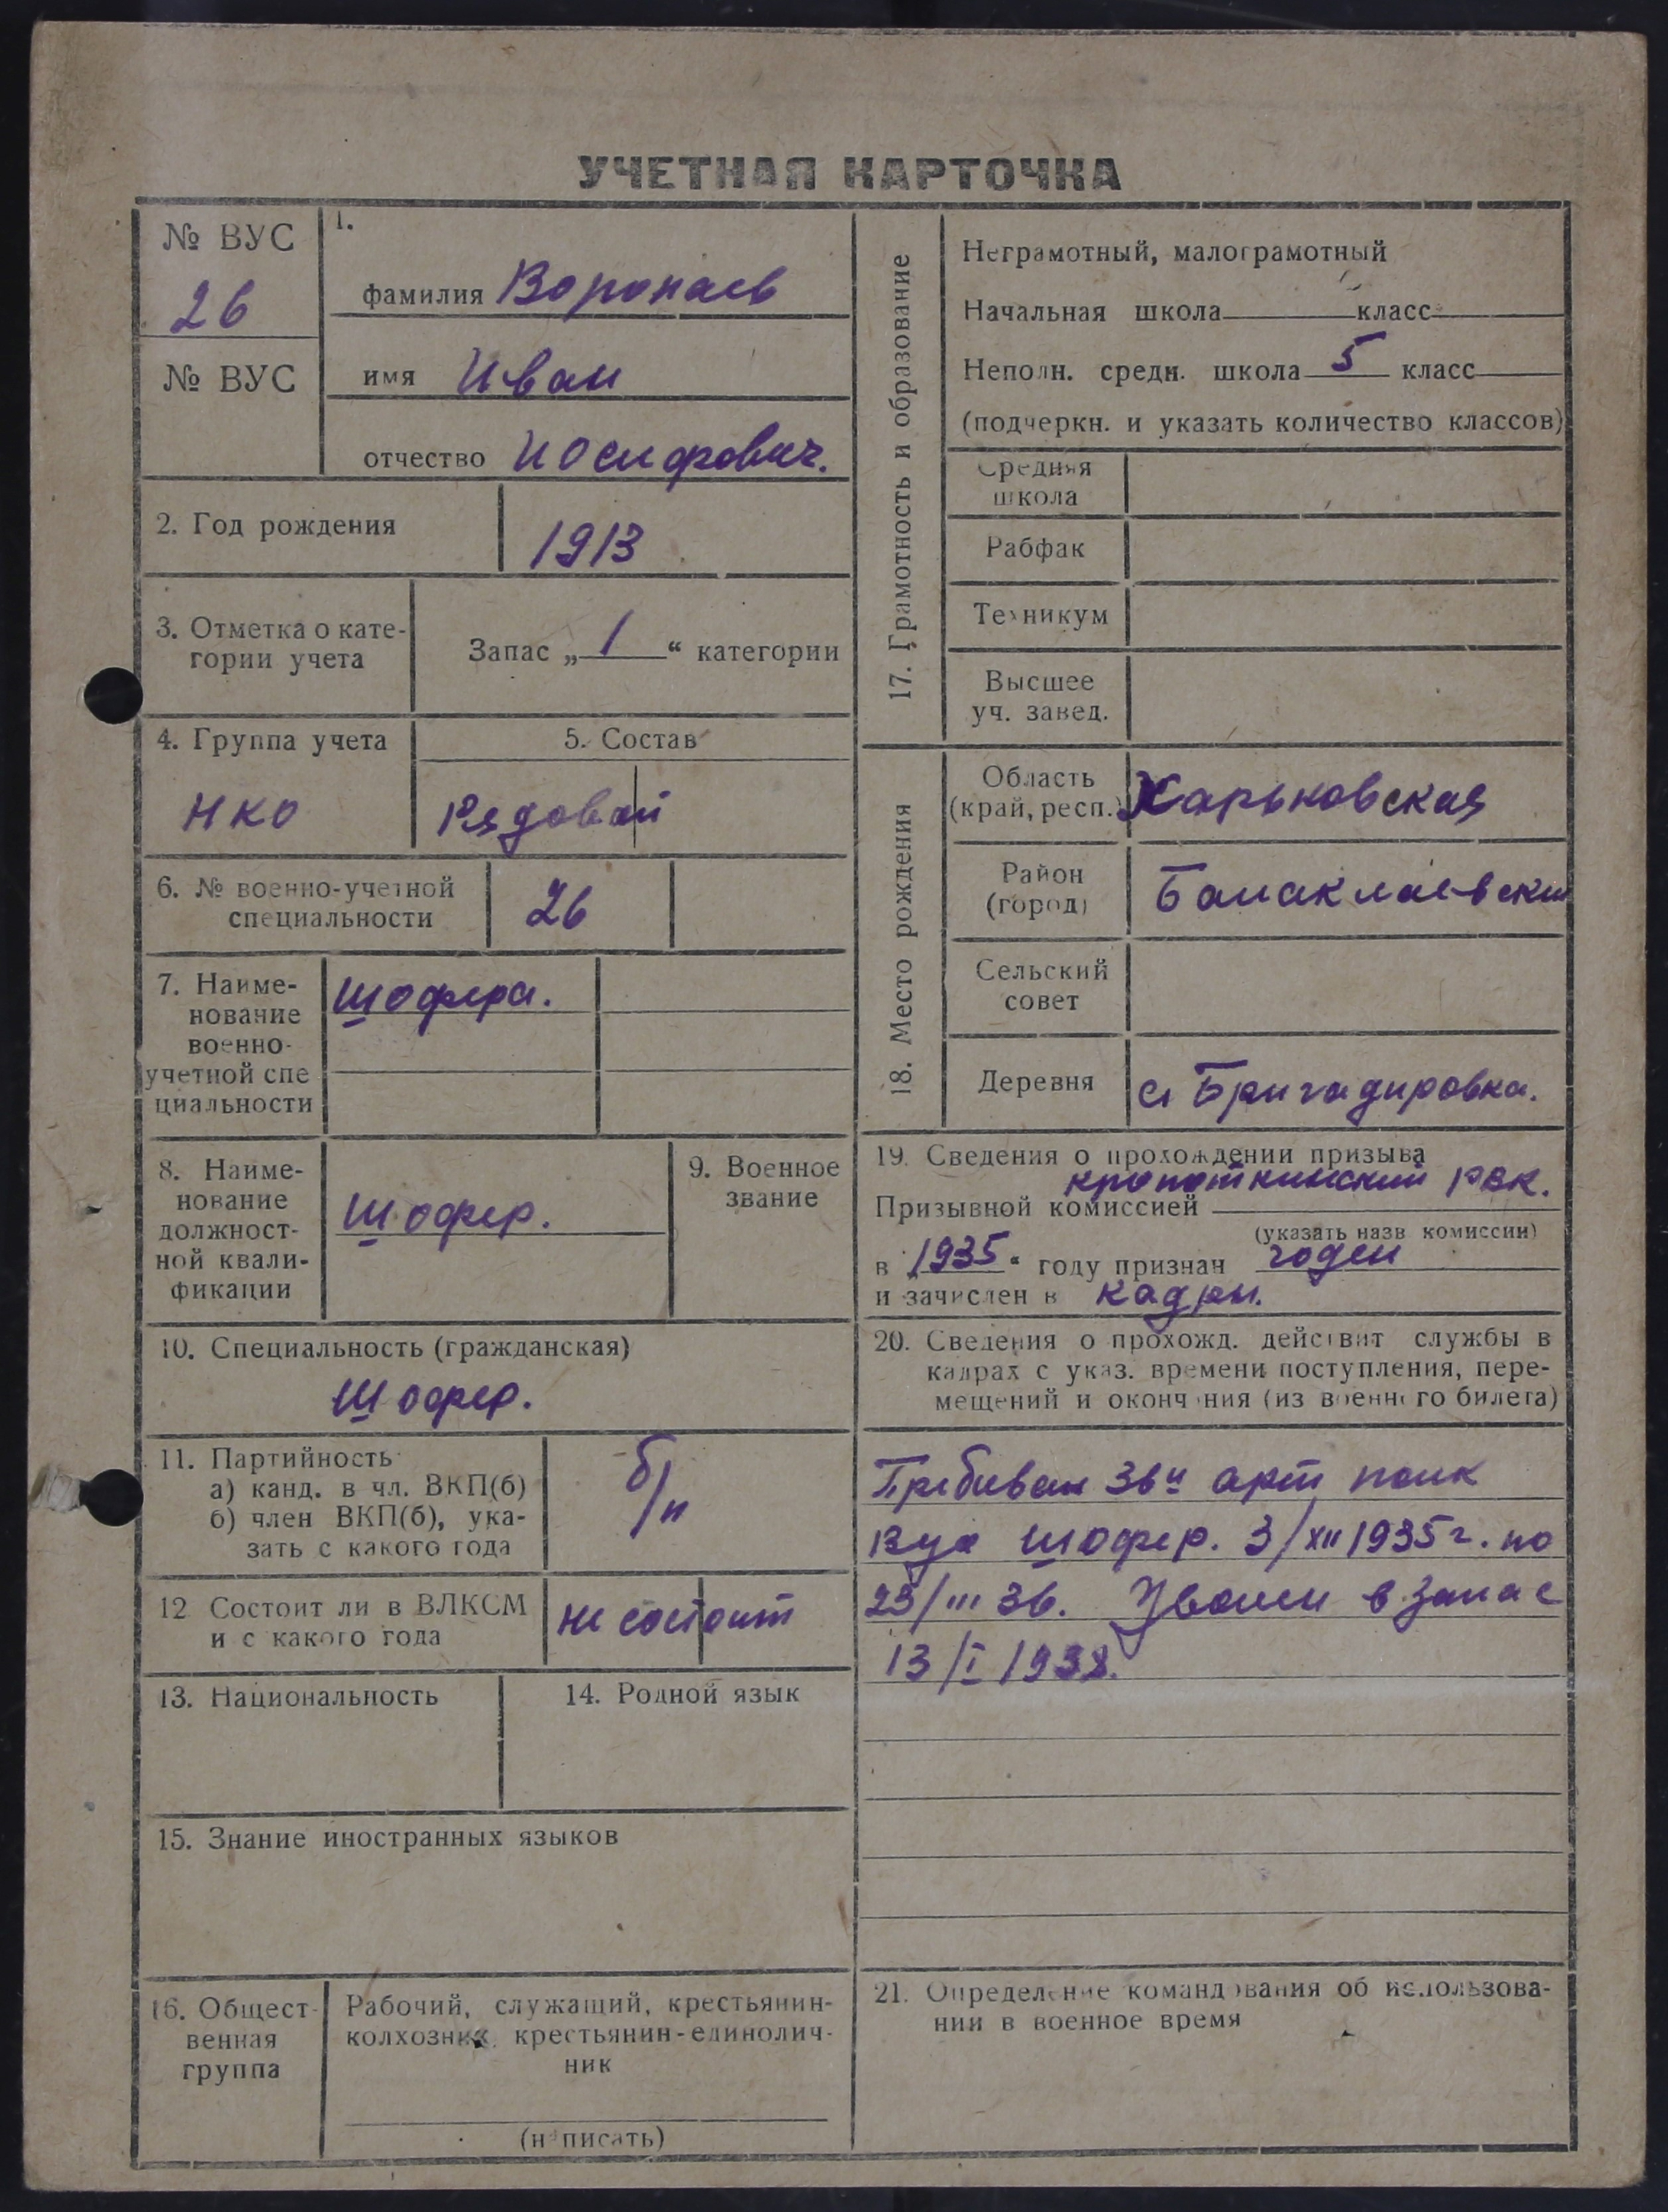 УЧЕТНАЯ КАРТОЧКА
№ ВУС
26
№ ВУС
1.
фамилия Воропаев
имя Иван
отчество Иосифович.
2. Год рождения
1913
3. Отметка о кате-
гории учета
Запас „ 1 “ категории
4. Группа учета
НКО
5. Состав
Рядовой
6. № военно-учетной
специальности
26
7. Наиме-
нование
военно-
учетной спе
циальности
Шофера.
8. Наиме-
нование
должност-
ной квали-
фикации
Шофер.
9. Военное
звание
10. Специальность (гражданская)
Шофер.
11. Партийность
а) канд. в чл. ВКП(б)
б) член ВКП(б), ука-
зать с какого года
б/п
12 Состоит ли в ВЛКСМ
и с какого года
не состоит
13. Национальность
14. Родной язык
15. Знание иностранных языков
16. Общест-
венная
группа
Рабочий, служащий, крестьянин-
колхозник, крестьянин-единолич-
ник
(написать)
17. Грамотность и образование
Неграмотный, малограмотный
Начальная школа класс
Неполн. средн. школа 5 класс
(подчеркн. и указать количество классов)
Средняя
школа
Рабфак
Техникум
Высшее
уч. завед.
18. Место рождения
Область
(край, респ.)
Харьковская
Район
(город)
Балаклаевский
Сельский
совет
Деревня
с. Бригадировка.
19. Сведения о прохождении призыва
Кропоткинский РВК.
Призывной комиссией
(указать назв комиссии)
в „1935“ году признан годен
и зачислен в кадры.
20. Сведения о прохожд. действит службы в
кадрах с указ. времени поступления, пере-
мещений и окончания (из военного билета)
36й арт полк
Шофер. 3/XII 1935 г. по
23/III 36. Уволен в запас
13/I 1938.
21. Определение командования об использова-
нии в военное время